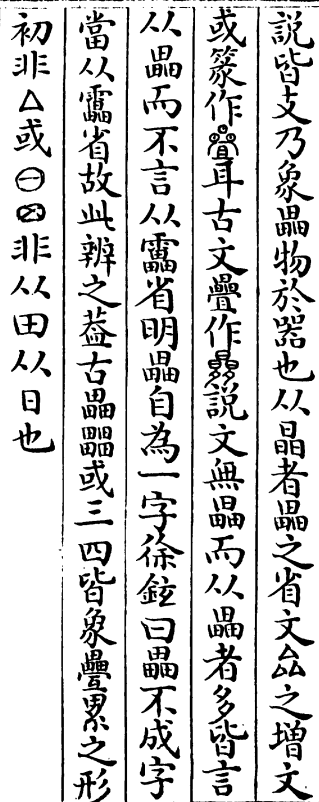 説皆支乃象畾物於器也从晶者畾之省文厽之增文
或篆作耳古文疊作説文無畾而从畾者多皆言
从畾而不言从靁省明畾自為一字徐鉉曰畾不成字
當从靁省故此辨之葢古畾𤳳或三四皆象疊累之形
初非△或⊖非从田从日也